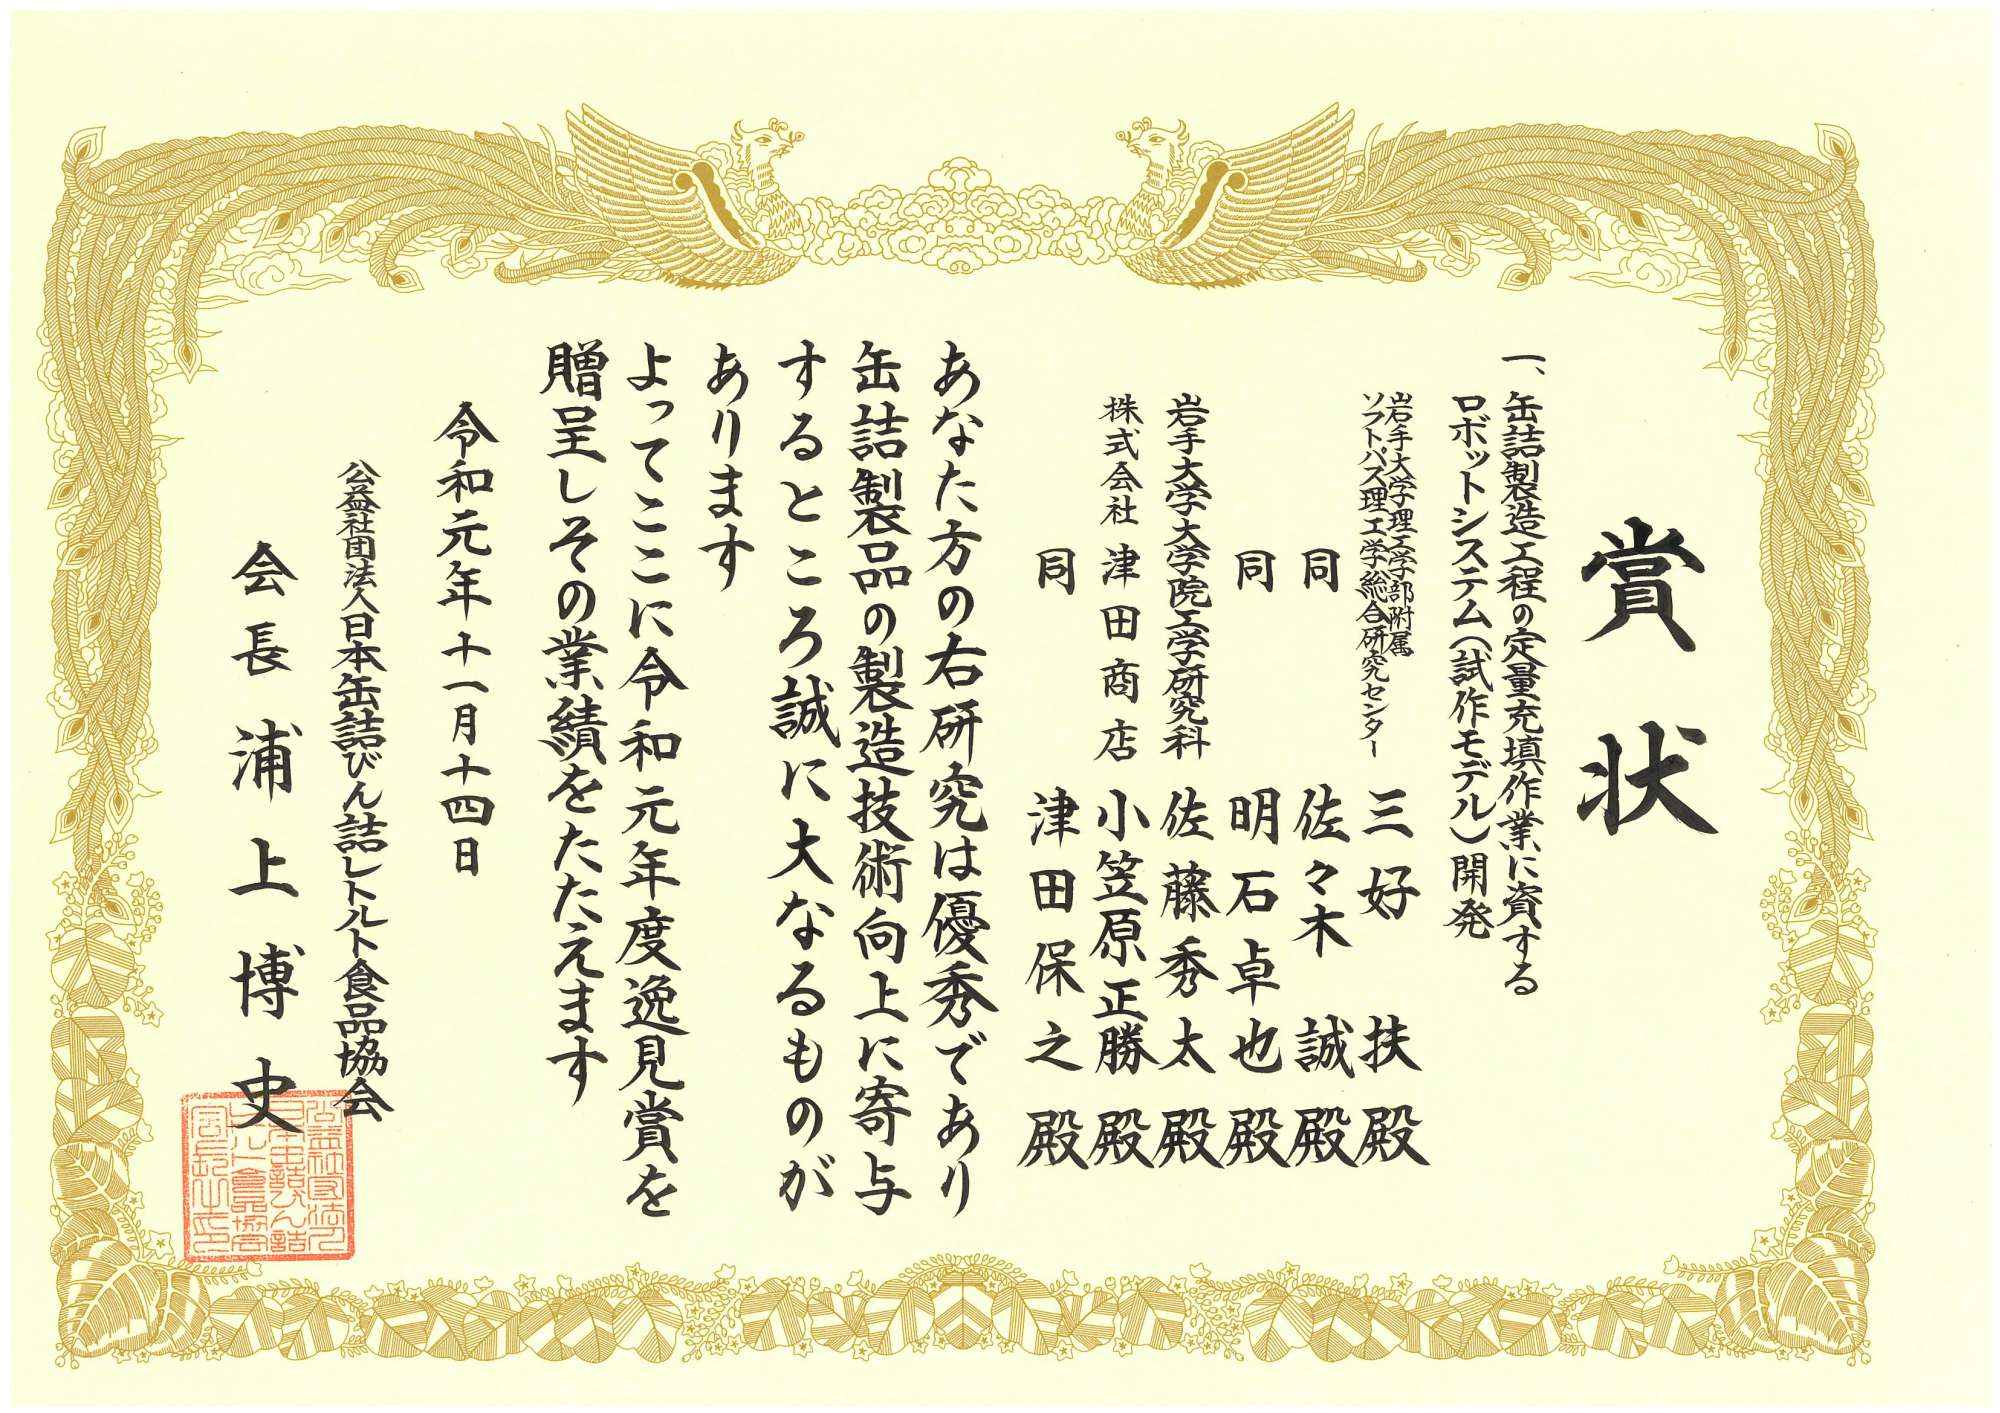 賞状
一、缶詰製造工程の定量充填作業に資する
ロボットシステム(試作モデル)開発
岩手大学理工学部附属
ソフトパス理工学総合研究センター 三好 扶 殿
同 佐々木 誠 殿
同 明石卓也 殿
岩手大学大学院工学研究科 佐藤秀太 殿
株式会社 津田商店 小笠原正勝 殿
同 津田保之 殿
あなた方の右研究は優秀であり
缶詰製品の製造技術向上に寄与
するところ誠に大なるものが
あります
よってここに令和元年度逸見賞を
贈呈しその業績をたたえます
令和元年十一月十四日
公益社団法人日本缶詰びん詰レトルト食品協会
会長 浦上博史
公益社団法人
日本缶詰びん詰
レトルト食品協会
会長之印